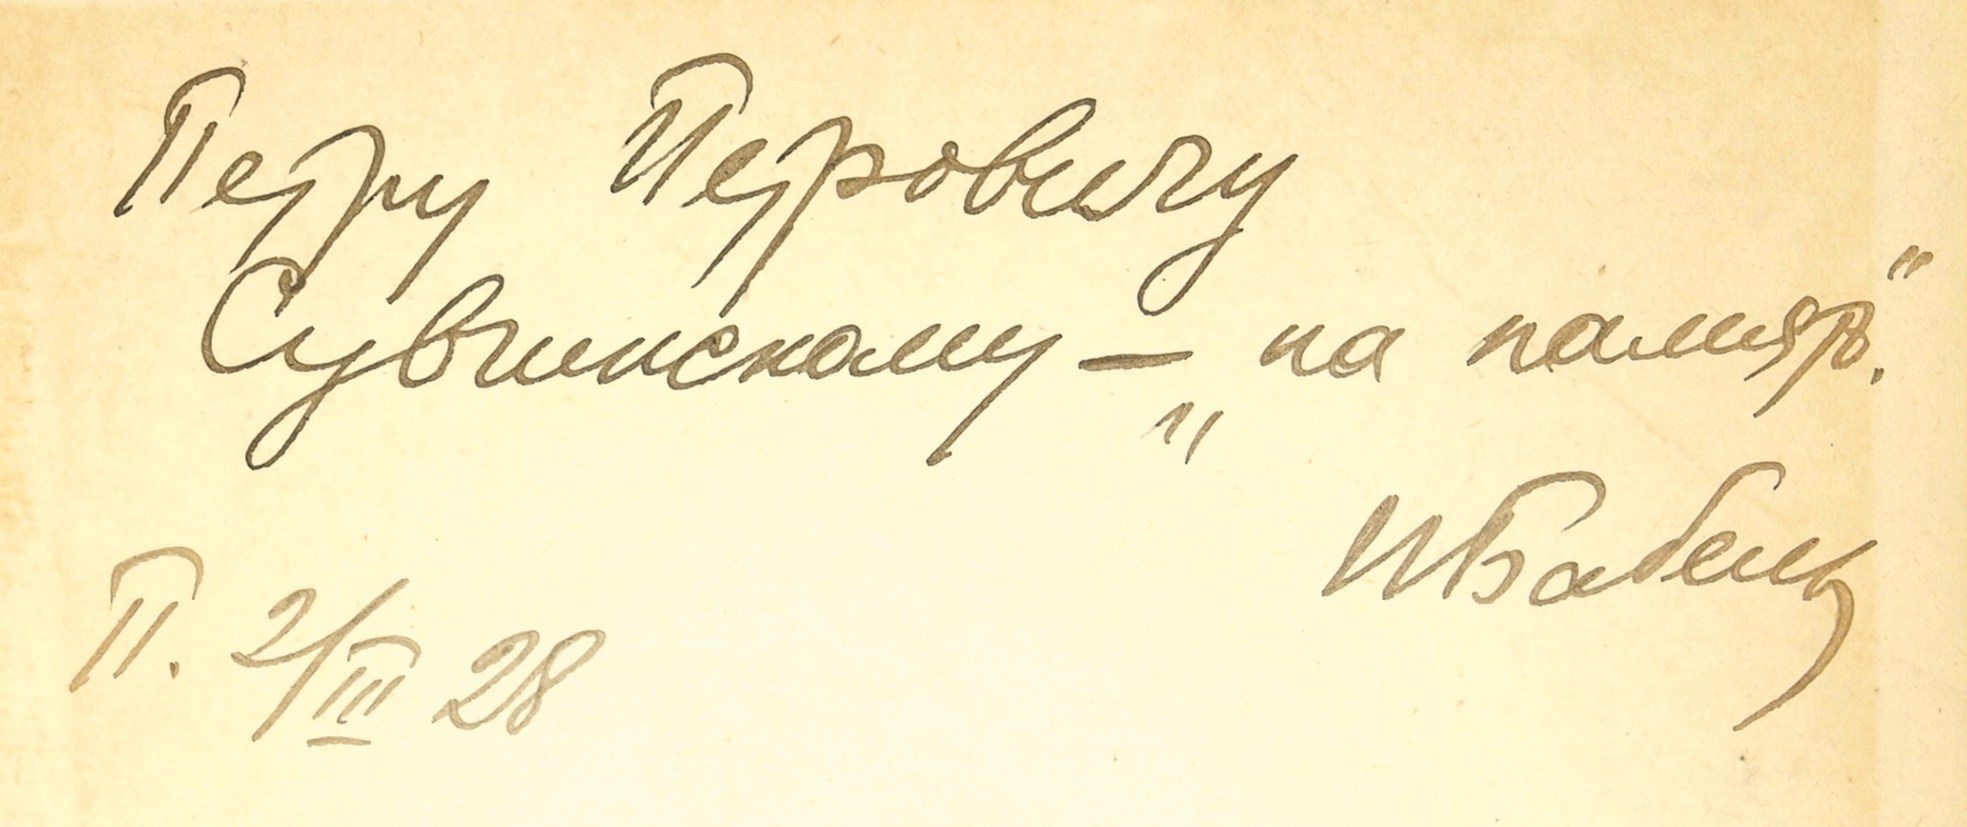 Петру Петровичу
Сувчинскому – „на память“.
И Бабель
П. 2/III 28